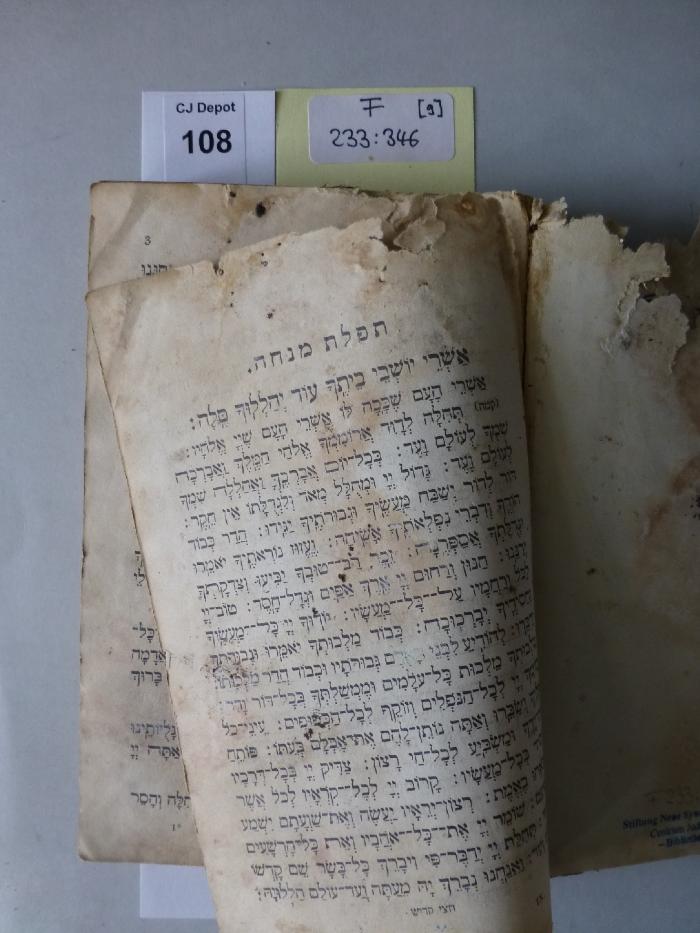 CJ Depot
108
F [9]
233:346
3
תפלת מנחה.
אַשְׁרֵי יוֹשְׁבֵי בֵיתֶךָ עוֹד יְהַלְלוּךָ סֶּלָה:
אַשְׁרֵי הָעָם שֶׁכָּכָה לּוֹ אַשְׁרֵי הָעָם שֶׁיְיָ אֱלֹהָיו:
(קמה) תְּהִלָּה לְדָוִד אֲרוֹמִמְךָ אֱלֹהַי הַמֶּלֶךְ וַאֲבָרְכָה
שִׁמְךָ לְעוֹלָם וָעֶד: בְּכָל־יוֹם אֲבָרְכֶךָּ וַאֲהַלְלָה שִׁמְךָ
לְעוֹלָם וָעֶד: גָּדוֹל יְיָ וּמְהֻלָּל מְאֹד וְלִגְדֻלָּתוֹ אֵין חֵקֶר:
דּוֹר לְדוֹר יְשַׁבַּח מַעֲשֶׂיךָ וּגְבוּרֹתֶיךָ יַגִּידוּ: הֲדַר כְּבוֹד
הוֹדֶךָ וְדִבְרֵי נִפְלְאֹתֶיךָ אָשִׂיחָה: וֶעֱזוּז נוֹרְאֹתֶיךָ יֹאמֵרוּ
אֲסַפְּרֶנָּה: זֵכֶר רַב־טוּבְךָ יַבִּיעוּ וְצִדְקָתְךָ
יְרַנֵּנוּ: חַנּוּן וְרַחוּם יְיָ אֶרֶךְ אַפַּיִם וּגְדָל־חָסֶד: טוֹב־יְיָ
לַכֹּל וְרַחֲמָיו עַל־כָּל־מַעֲשָׂיו: יוֹדוּךָ יְיָ כָּל־מַעֲשֶׂיךָ
וַחֲסִידֶיךָ יְבָרְכוּכָה: כְּבוֹד מַלְכוּתְךָ יֹאמֵרוּ וּגְבוּרָתְךָ
לְהוֹדִיעַ לִבְנֵי גְּבוּרֹתָיו וּכְבוֹד הֲדַר מַלְכוּתוֹ:
מַלְכוּת כָּל־עֹלָמִים וּמֶמְשַׁלְתְּךָ בְּכָל־דּוֹר וָדֹר:
יְיָ לְכָל־הַנֹּפְלִים וְזוֹקֵף לְכָל־הַכְּפוּפִים: עֵינֵי־כֹל
יְשַׂבֵּרוּ וְאַתָּה נוֹתֵן־לָהֶם אֶת־אָכְלָם בְּעִתּוֹ: פּוֹתֵחַ
וּמַשְׂבִּיעַ לְכָל־חַי רָצוֹן: צַדִּיק יְיָ בְּכָל־דְּרָכָיו
בְּכָל־מַעֲשָׂיו: קָרוֹב יְיָ לְכָל־קֹרְאָיו לְכֹל אֲשֶׁר
בֶאֱמֶת: רְצוֹן־יְרֵאָיו יַעֲשֶׂה וְאֶת־שַׁוְעָתָם יִשְׁמַע
שׁוֹמֵר יְיָ אֶת־כָּל־אֹהֲבָיו וְאֵת כָּל־הָרְשָׁעִים
תְּהִלַּת יְיָ יְדַבֶּר־פִּי וִיבָרֵךְ כָּל־בָּשָׂר שֵׁם קָדְשׁוֹ
וַאֲנַחְנוּ נְבָרֵךְ יָהּ מֵעַתָּה וְעַד־עוֹלָם הַלְלוּיָהּ:
חצי קדיש.
כָּל־
בָּרוּךְ
אַתָּה יְיָ
וָחֶסֶר
1*
Stiftung Neue